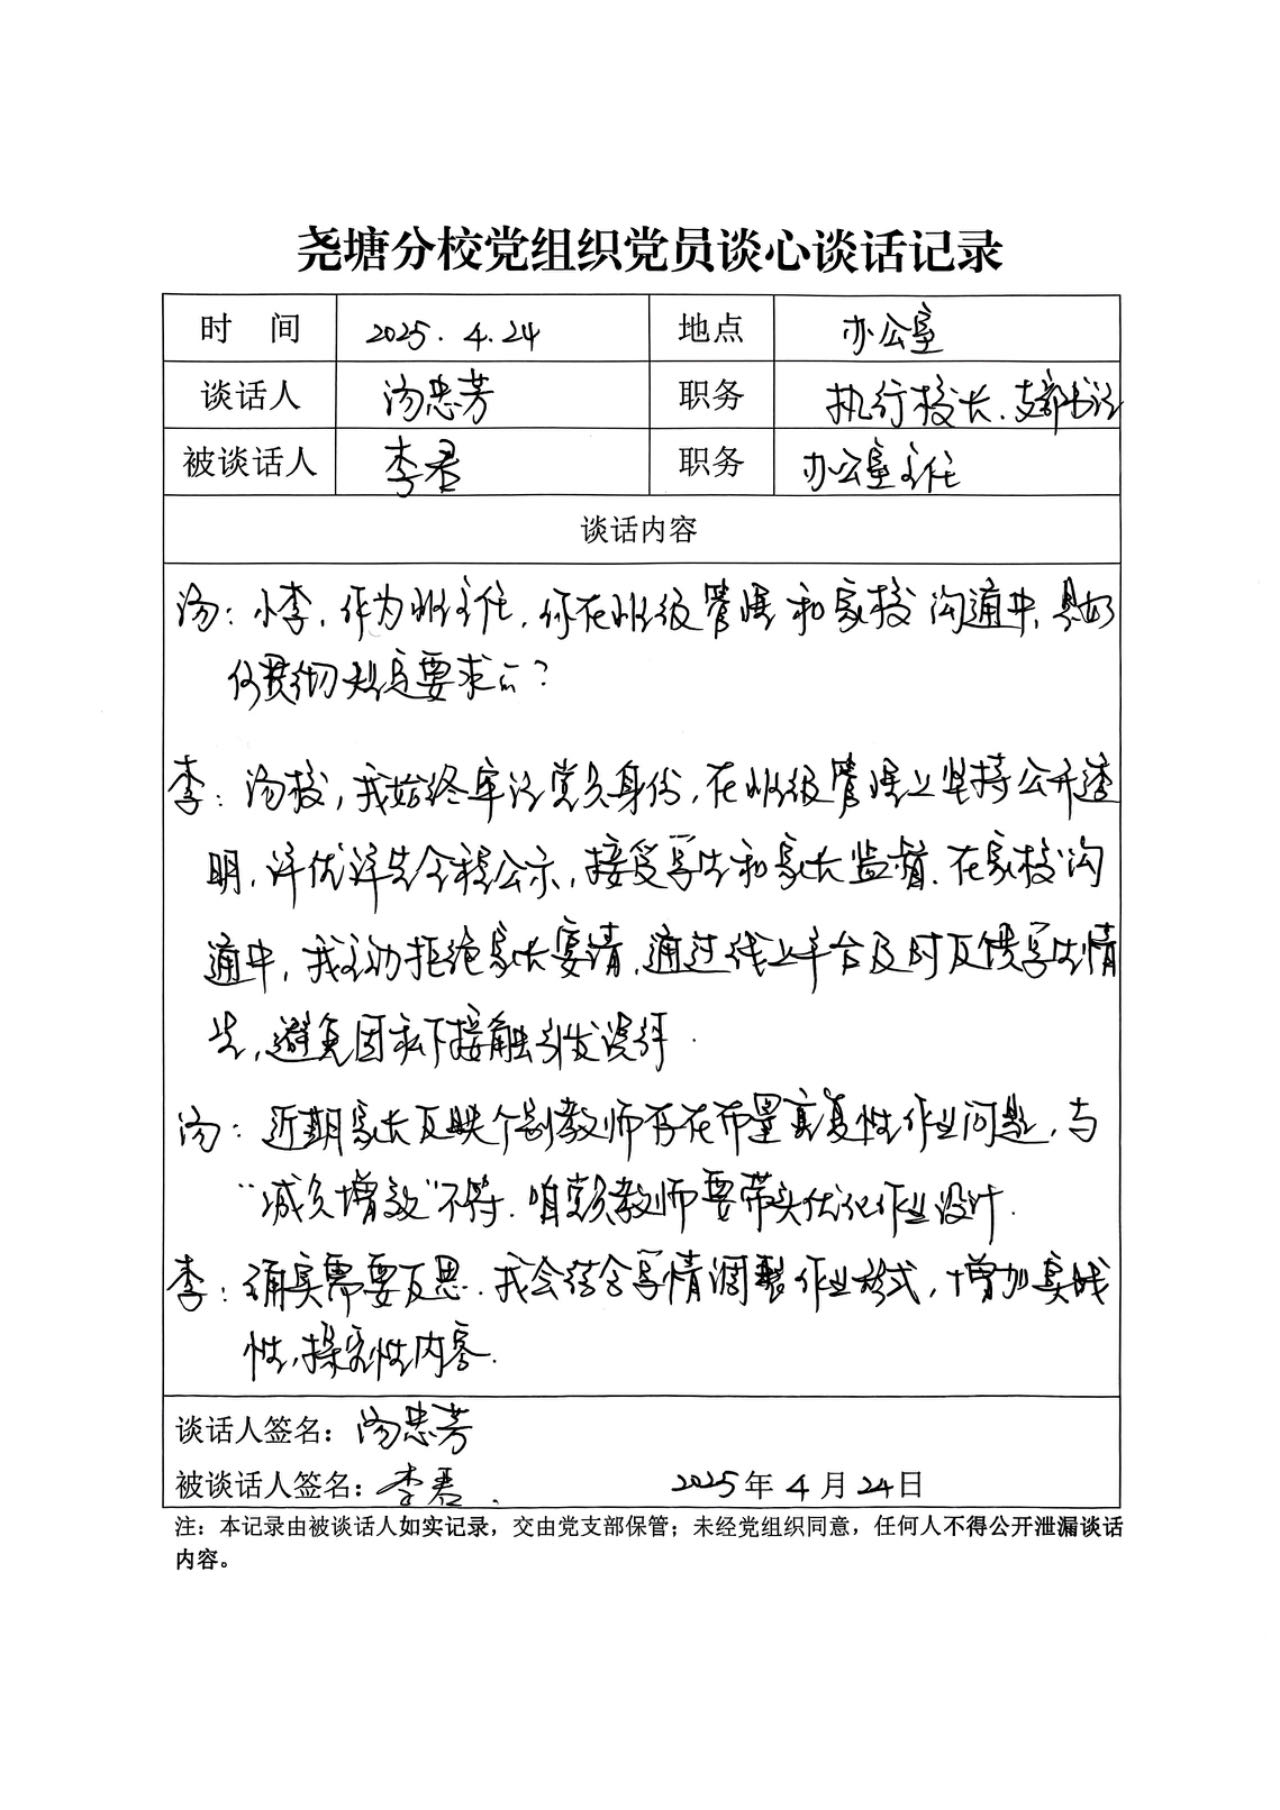 尧塘分校党组织党员谈心谈话记录
时 间 2025.4.24 地点 办公室
谈话人 汤忠芳 职务 执行校长、支部书记
被谈话人 李君 职务 办公室主任
谈话内容
汤：小李，作为班主任，你在班级管理和家校沟通中，是如
何贯彻规定要求的？
李：汤校，我始终牢记党员身份，在班级管理上坚持公开透
明，评优评先全程公示，接受学生和家长监督。在家校沟
通中，我主动拒绝家长宴请，通过线上平台及时反馈学生情
况，避免因私下接触引发误解.
汤：近期家长反映个别教师存在布置重复性作业问题，与
“减负增效”不符. 咱党员教师要带头优化作业设计.
李：确实需要反思. 我会结合学情调整作业形式，增加实践
性，探究性内容.
谈话人签名：汤忠芳
被谈话人签名：李君. 2025年4月24日
注：本记录由被谈话人如实记录，交由党支部保管；未经党组织同意，任何人不得公开泄漏谈话
内容。